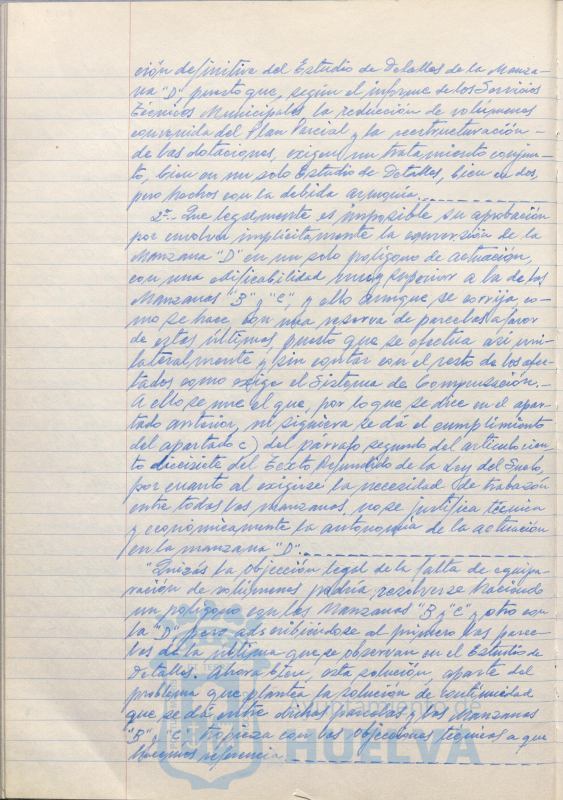 ción definitiva del Estudio de Detalles de la Manza-
na "D" puesto que, según el informe de los Servicios
Técnicos Municipales la reducción de volúmenes
convenida del Plan Parcial y la reestructuración -
de las dotaciones, exigen un tratamiento conjun-
to, bien en un solo Estudio de Detalles, bien en dos,
pero hechos con la debida armonía.
2º.- Que legalmente es imposible su aprobación
por envolver implícitamente la conversión de la
Manzana "D" en un solo polígono de actuación,
con una edificabilidad muy superior a la de las
Manzanas "B" y "C", y ello aunque se corrija co-
mo se hace con una reserva de parcelas a favor
de estas últimas, puesto que se efectua así uni-
lateralmente y sin contar con el resto de los afec-
tados como exige el Sistema de Compensación.-
A ello se une el que, por lo que se dice en el apar-
tado anterior, ni siquiera se dá el cumplimiento
del apartado c) del párrafo segundo del artículo cien-
to diecisiete del Texto Refundido de la Ley del Suelo,
por cuanto al exigirse la necesidad de trabazón
entre todas las manzanas, no se justifica técnica
y económicamente la autonomía de la actuación
en la manzana "D".
"Quizás la objección legal de la falta de equipa-
ración de volúmenes podría resolverse haciendo
un polígono con las Manzanas "B y C", y otro con
la "D" pero adscribiéndose al primero las parce-
las de la última que se observan en el Estudio de
Detalles. Ahora bien, esta solución, aparte del
problema que plantea la solución de continuidad
que se dá entre dichas parcelas y las Manzanas
"B" y "C", tropieza con las objecciones técnicas a que
hacemos referencia.
Ayuntamiento de
HUELVA